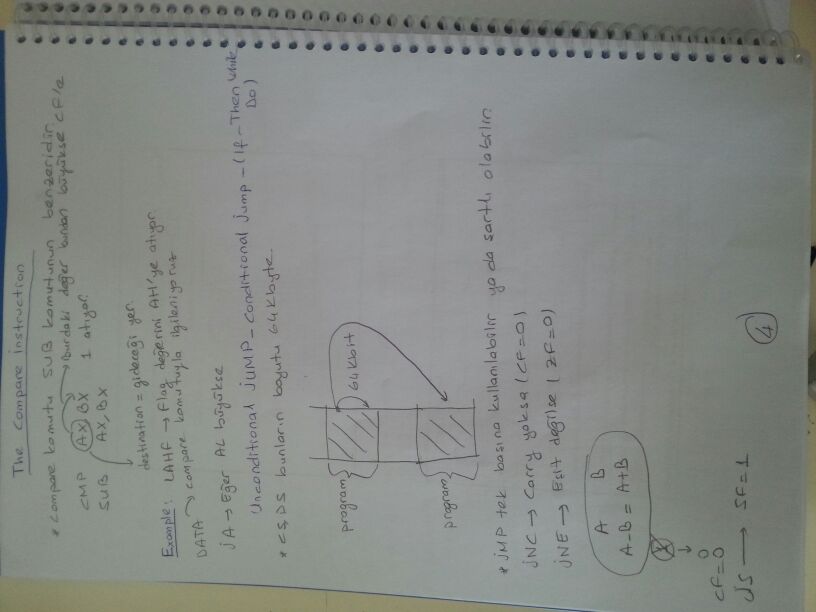 The Compare instruction
* Compare komutu SUB komutunun benzeridir.
CMP AX, BX → Burdaki değer bundan büyükse CF'e
1 atıyor
SUB AX, BX
destination = gideceği yer.
Example: LAHF → Flag değerini AH'ye atıyor
DATA → compare komutuyla ilgileniyoruz
JA → Eğer AL büyükse
Unconditional jUMP - Conditional jump - (If - Then While
Do)
* CS, DS bunların boyutu 64 Kbyte.
program
64 Kbit
program
* jMP tek basına kullanılabilir ya da sartlı olabilir.
jNC → Carry yoksa (CF=0)
jNE → Eşit değilse (ZF=0)
A B
A-B = A+B
↓
0
CF=0
JS → SF=1
4